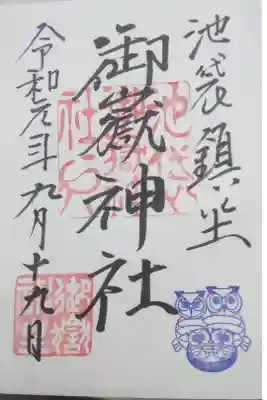 池袋鎮坐
御嶽神社
令和元年九月十九日